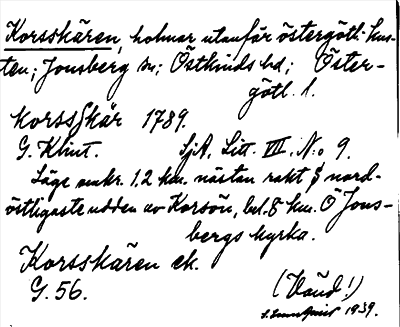 Korsskären, holmar utanför östergötl. kus-
ten; Jonsberg sn; Östkinds hd; Öster-
götl. l.
Korsskär 1789.
G. Klint. SjA. Litt. VII. No 9.
Läge omkr. 1.2 km. nästan rakt S nord-
östligaste udden av Korsön, bel. 8 km. Ö Jons-
bergs kyrka.
Korsskären ek.
G. 56. (Vänd!)
1939.